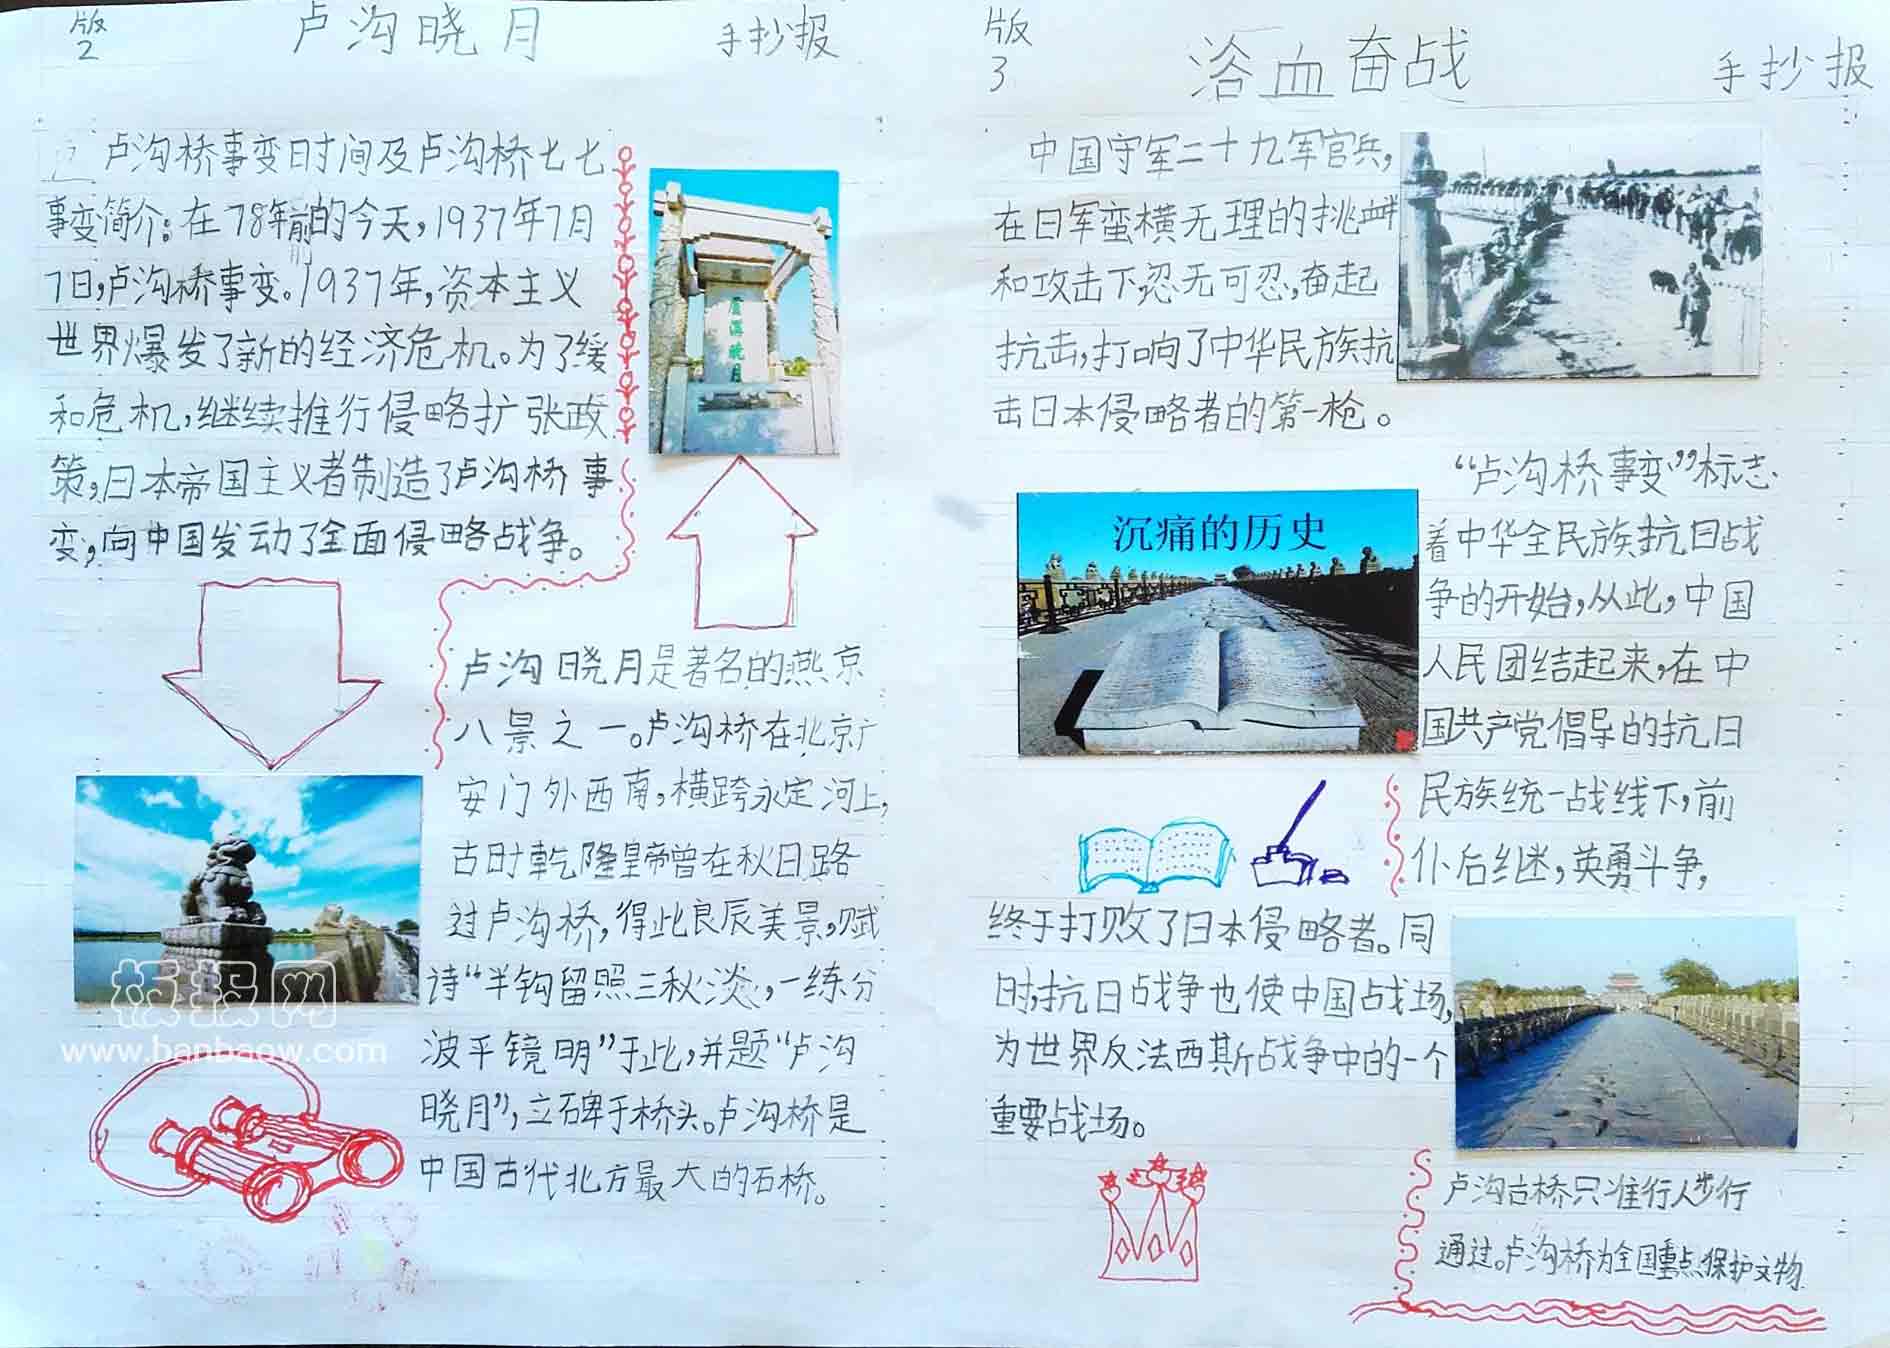 版2
卢沟晓月
手抄报
卢沟桥事变时间及卢沟桥七七
事变简介:在78年前的今天,1937年7月
7日,卢沟桥事变。1937年,资本主义
世界爆发了新的经济危机。为了缓
和危机,继续推行侵略扩张政
策,日本帝国主义者制造了卢沟桥事
变,向中国发动了全面侵略战争。
盧溝曉月
卢沟晓月是著名的燕京
八景之一。卢沟桥在北京广
安门外西南,横跨永定河上,
古时乾隆皇帝曾在秋日路
过卢沟桥,得此良辰美景,赋
诗“半钩留照三秋淡,一练分
波平镜明”于此,并题“卢沟
晓月”,立碑于桥头。卢沟桥是
中国古代北方最大的石桥。
板报网
www.banbaow.com
版3
浴血奋战
手抄报
中国守军二十九军官兵,
在日军蛮横无理的挑衅
和攻击下,忍无可忍,奋起
抗击,打响了中华民族抗
击日本侵略者的第一枪。
沉痛的历史
“卢沟桥事变”标志
着中华全民族抗日战
争的开始,从此,中国
人民团结起来,在中
国共产党倡导的抗日
民族统一战线下,前
仆后继,英勇斗争,
终于打败了日本侵略者。同
时,抗日战争也使中国战场,
为世界反法西斯战争中的一个
重要战场。
卢沟古桥只准行人步行
通过。卢沟桥为全国重点保护文物